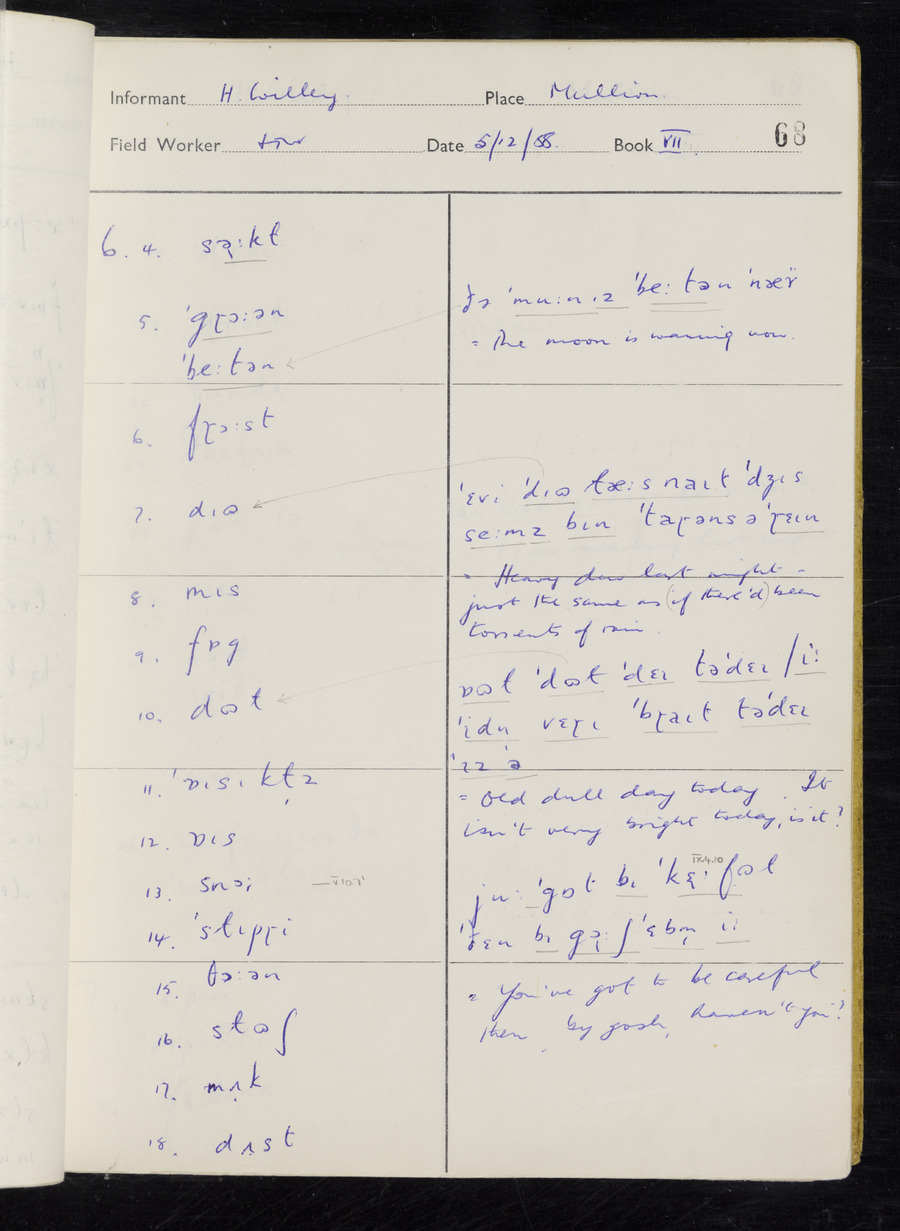 Informant H. Willey. Place Mullion.
Field Worker Date 5/12/58. Book VII 68
6. 4. sə̣ːkt
5. 'gɽɔːən
'beːtən
6. fɽɔːst
7. dɪɷ
8. mɪs
9. fɒg
10. dɷt
11. 'ɒɪsɪkḷz
12. ɒɪs
13. snɔː — V.10.7
14. 'slɪpɽi
15. tɔːən
16. stɷʃ
17. mʌ̣k
18. dʌ̣st
ðə 'muːnɪz 'beːtən 'næʏ
= The moon is waning now.
'ɛvi 'dɪɷ læːs naɪt 'dʒɪs
seːmz bɪn 'taɽəns ə'ɽɛɪn
= Heavy dew last night -
just the same as (if there'd) been
torrents of rain.
ɒɷl 'dɷl 'dɛɪ tə'dɛɪ / iː
'ɪdn vɛɽɪ 'bɽaɪt tə'dɛɪ
'ɪz ə
= Old dull day today. It
isn't very bright today, is it?
IX.4.10
juː 'gɒt bɪ 'kɛ̣ːfɷl
'ðɛn bɪ gɔ̣ːʃ 'ɛbm̩ iː
= You've got to be careful
then, by gosh, haven't you?